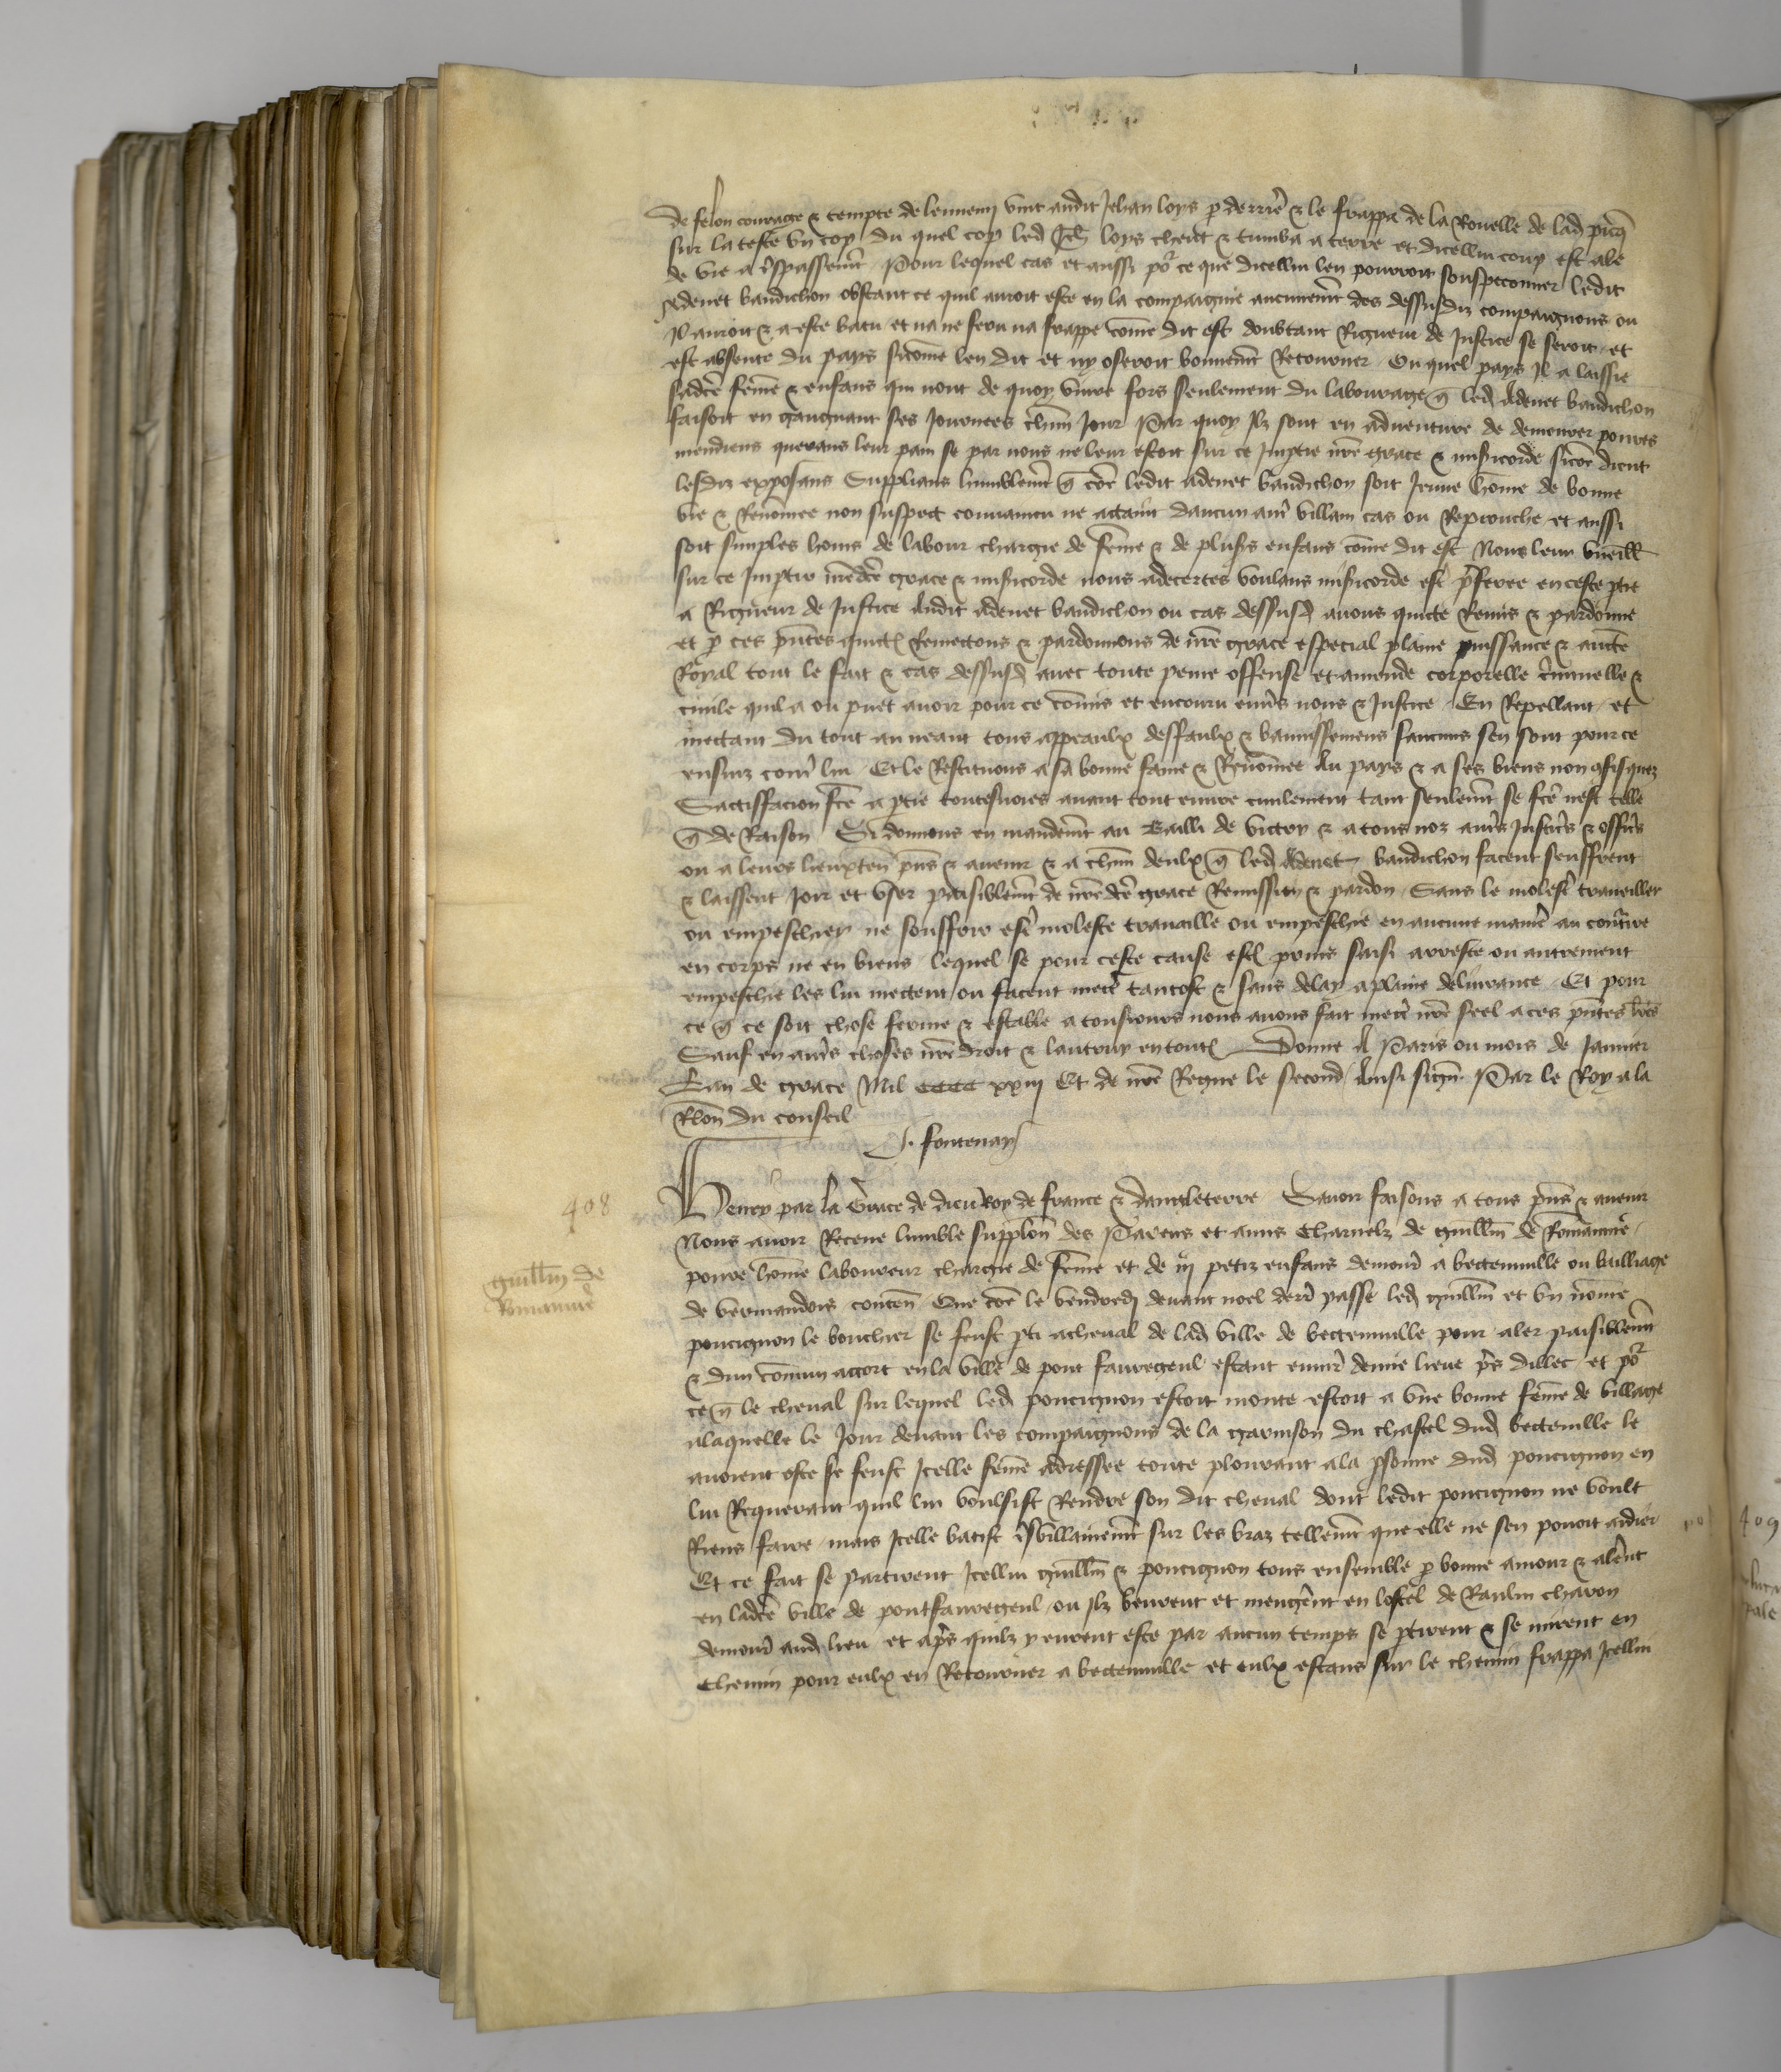 de felon courage & tempte de lennemi vint audit Jehan loys p derrie & le frappa de la Rouelle de lad
sur la teste un cop du quel cop led Jeh loys cheut & tumba a terre et dicellui coup est ale
de vie a t̃spassemt Pour lequel cas et aussi por ce que dicellui len pourroit souspeconner ledit
Adenet baudichon obstant ce quil auroit este en la compaignie aucunemt des dessusdiz compaignons ou
Il auroit & a este batu et na ne feru na frappe cōme dit est doubtant Rigueur de Justice se seroit et
est absente du pays sicōme len dit et ny oseroit bonnemt Retourner Ou quel pays Il a laissie
sadcē fēme & enfans qui nont de quoy vivre fors seulement du labourage q̄ led Adenet baudichon
faisoit en gaignant ses Journees chm̄ Jour Par quoy Ilz sont en aduenture de demourer poures
mendiens querans leur pain se par nous ne leur estoit sur ce Impartie nr̄e grace & misicorde sicōe dient
lesdiz exposans Supplians humblemt q̄ cōe ledit adenet baudichon soit Jeune hōme de bonne
vie & Renōmee non suspect conuaincu ne actaint daucun autr̄ villain cas ou Reprouche et aussi
soit simples homs de labour chargie de fēme & de plusrs enfans cōme dit est Nous leur vueill
sur ce Imptir nr̄edcē grace & misicorde nous adecertes voulans misicorde estr̄ p̄feree en ceste ptie
a Rigueur de Justice Audit Adenet baudichon ou cas dessusd auons quicte Remis & pardonne
et p ces pn̄tes quict Remectons & pardonnons de nr̄e grace especial plaine puissance & aucte
Royal tout le fait & cas dessusd auec toute peine offense et amende corporelle c̃iminelle &
ciuile quil a ou puet auoir pour ce cōmis et encouru enuers nous & Justice En Repellant et
mectant du tout au neant tous appeaulx deffaulx & bannissemens saucuns sen sont pour ce
ensuiz contr̄ lui Et le Restituons a sa bonne fame & Renōmee Au pays & a ses biens non 9fisquez
Sactiffacion fcē a ptie toutesuoies auant tout euure ciuilement tant seulemt se fcē nest telle
q̄ de Raison Si donnons en mandemt au Bailli de victry & a tous noz autrs Justicrs & officrs
ou a leurs lieuxten̄ pn̄s & auenir & a chm̄ deulx q̄ led Adenet baudichon facent seuffrent
& laissent Joir et user paisiblemt de nr̄edcē grace Remission & pardon Sans le molestr̄ traueiller
ou empeschier ne souffrir estr̄ moleste trauaille ou empeschie en aucune manie au contr̄ire
en corps ne en biens lequel se pour ceste cause est prins saisi arreste ou autrement
empeschie les lui mectent ou facent mectr̄ tantost & sans delay a plaine deliurance Et pour
ce q̄ ce soit chose ferme & estable a tousiours nous auons fait mectr̄ nr̄e seel a ces pn̄tes lr̄es
Sauf en autrs choses nr̄e droit & lautruy en tout Donne A Paris ou mois de Januier
Lan de grace Mil cccc xxiij Et de nr̄e Regne le second Ainsi sign̄ Par le Roy a la
Rlon̄ du conseil
J. fontenay
Henry par la Grace de dieu Roy de france & dangleterre Sauoir faisons a tous pn̄s & auenir
Nous auoir Receue lumble supplon̄ des Parens et amis Charnelz de guillm̄ de Romanmie
poure hōme laboureur chargie de fēme et de iij petiz enfans demour̄ a bectenuille ou bailliage
de vermandois conten̄ Que cōe le vendredi deuant noel derr̄ passe led guillm̄ et un nōme
poncignon le bouchier se feust pti acheual de lad ville de bectenuille pour aler paisiblemt
& dun cōmun accort en la ville de pont fauregeul estant enuir̄ demie lieue pr̄s dillec et por
ce q̄ le cheual sur lequel led poncignon estoit monte estoit a une bonne fēme de village
alaquelle le Jour deuant les compaignons de la garnison du chastel dud bectenuille le
auoient oste se feust Icelle fēme adressee toute plourant a la psonne dud poncignon en
lui Requerant quil lui voulsist Rendre son dit cheual dont ledit poncignon ne voult
Riens faire mais Icelle batist t̃svillainemt sur les braz tellemt que elle ne sen pouoit aidier
Et ce fait se partirent Icellui guillm̄ & poncignon tous ensemble p bonne amour & alerēt
en ladcē ville de pontfauregeul ou Ilz beurent et mengerēt en lostel de Raulin charon
demour̄ aud lieu et apr̄s quilz y eurent este par aucun temps se ptirent & se mirent en
Chemin pour eulx en Retourner a bectenuille et eulx estans sur le chemin frappa Icellui
408
guillm̄ de
Romanmie
409